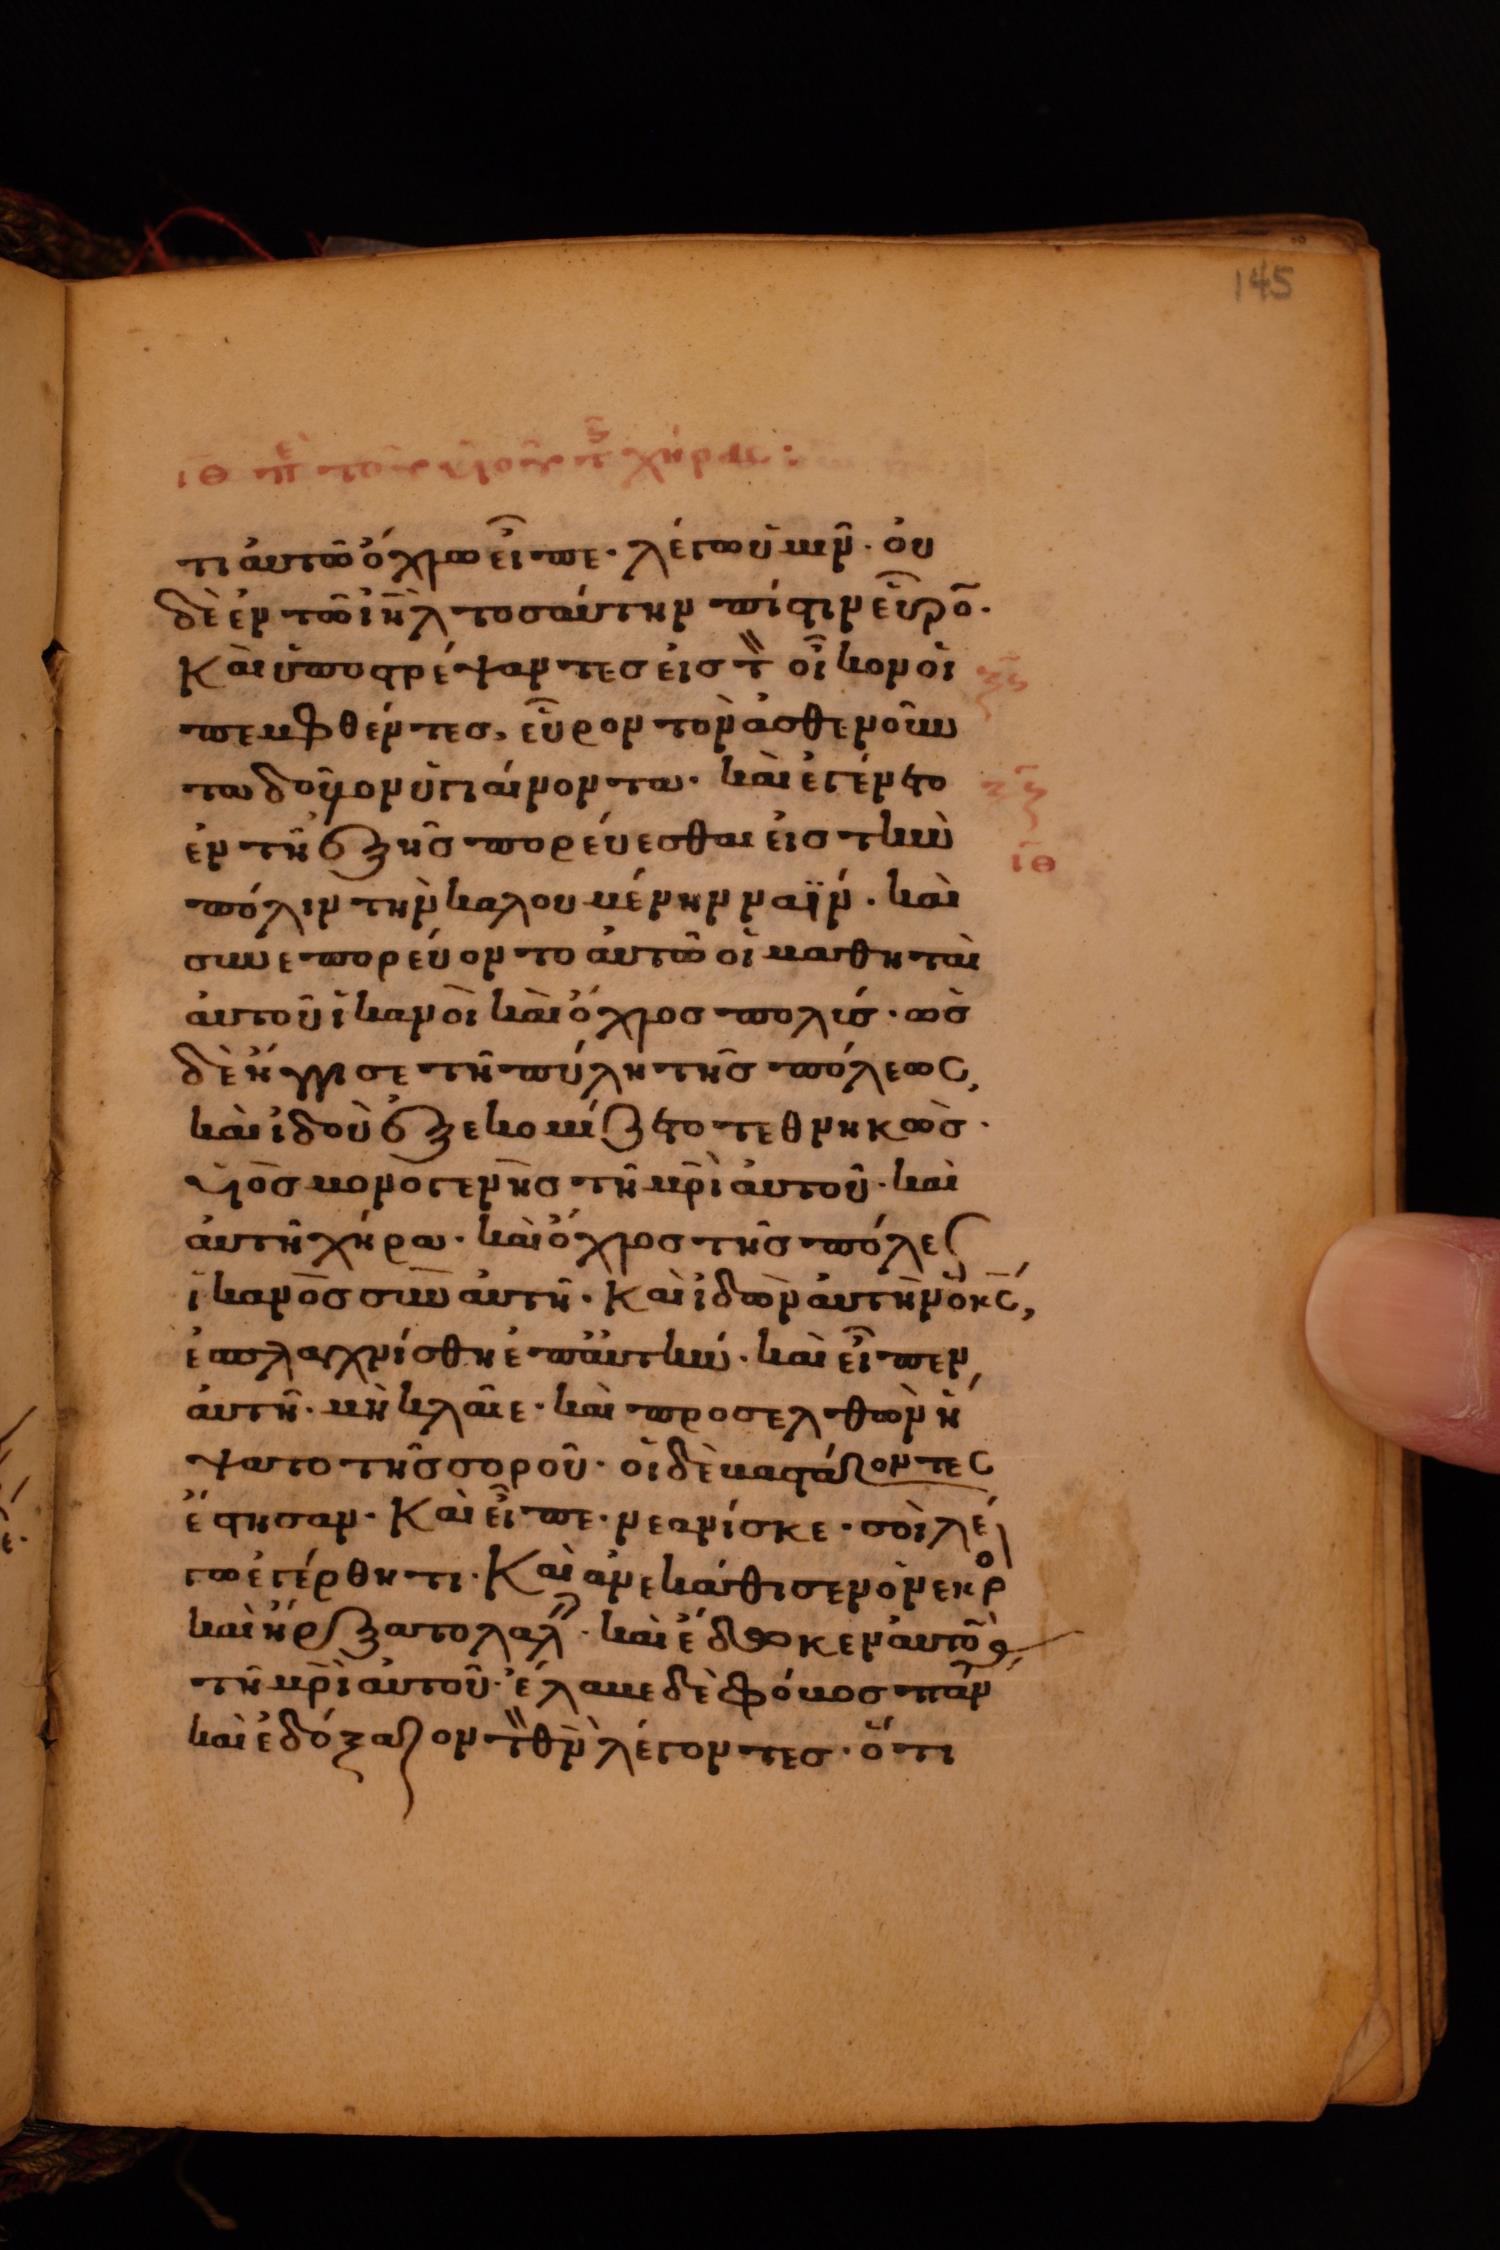 145
ιθ πε τοῦ υἱοῦ τῆς χήρας:
τι αὐτῶ ὄχλω εἶπε· λέγω ὑμῖν· οὐ
δὲ ἐν τῶ ἰηλ τοσαύτην πίστιν εὗρον·
Καὶ ὑποστρέψαντες εἰς τ οἶκον οἱ
πεμφθέντες, εὗρον τὸν ἀσθενοῦν
τα δοῦλον ὑγιαίνοντα· καὶ ἐγένετο
ἐν τῆ ἑξῆς πορεύεσθαι εἰς τὴν
ιθ
πόλιν τὴν καλουμένην ναϊν· καὶ
συνεπορεύοντο αὐτῶ οἱ μαθηταὶ
αὐτοῦ ἱκανοὶ καὶ ὄχλος πολύς· ὡς
δὲ ἤγγισε τῆ πύλη τῆς πόλεως,
καὶ ἰδοὺ ἐξεκομίζετο τεθνηκὼς·
υἱὸς μονογενὴς τῆ μρὶ αὐτοῦ· καὶ
αὐτὴ χήρα· καὶ ὄχλος τῆς πόλεως
ἱκανὸς σὺν αὐτῆ· Καὶ ἰδὼν αὐτὴν ὁ κς,
ἐσπλαγχνίσθη ἐπ αὐτήν· καὶ εἶπεν
αὐτῆ· μὴ κλαῖε· καὶ προσελθὼν ἥ
ψατο τῆς σοροῦ· οἱ δὲ βαστάζοντες
ἔστησαν· Καὶ εἶπε· νεανίσκε· σοὶ λέ
γω ἐγέρθητι· Καὶ ἀνεκάθισεν ὁ νεκρο
καὶ ἤρξατο λαλ· καὶ ἔδωκεν αὐτὸν
τῆ μρὶ αὐτοῦ· ἔλαβε δὲ φόβος παν
καὶ ἐδόξαζον τ θν λέγοντες· ὅτι